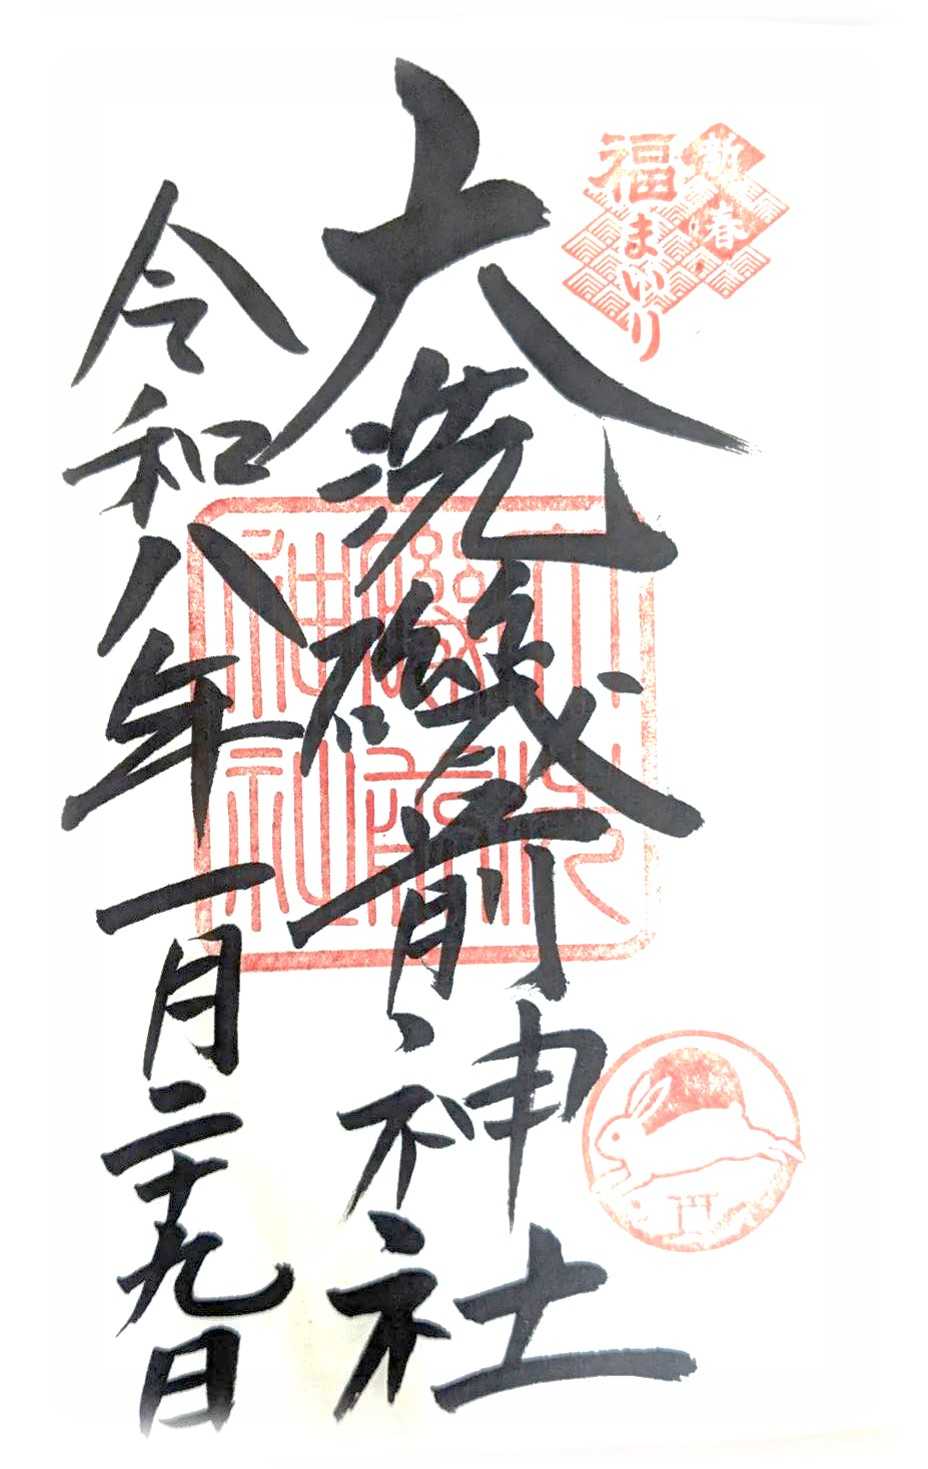 新春
福まいり
大洗磯前神社
大洗
磯前
神社
令和八年一月二十九日